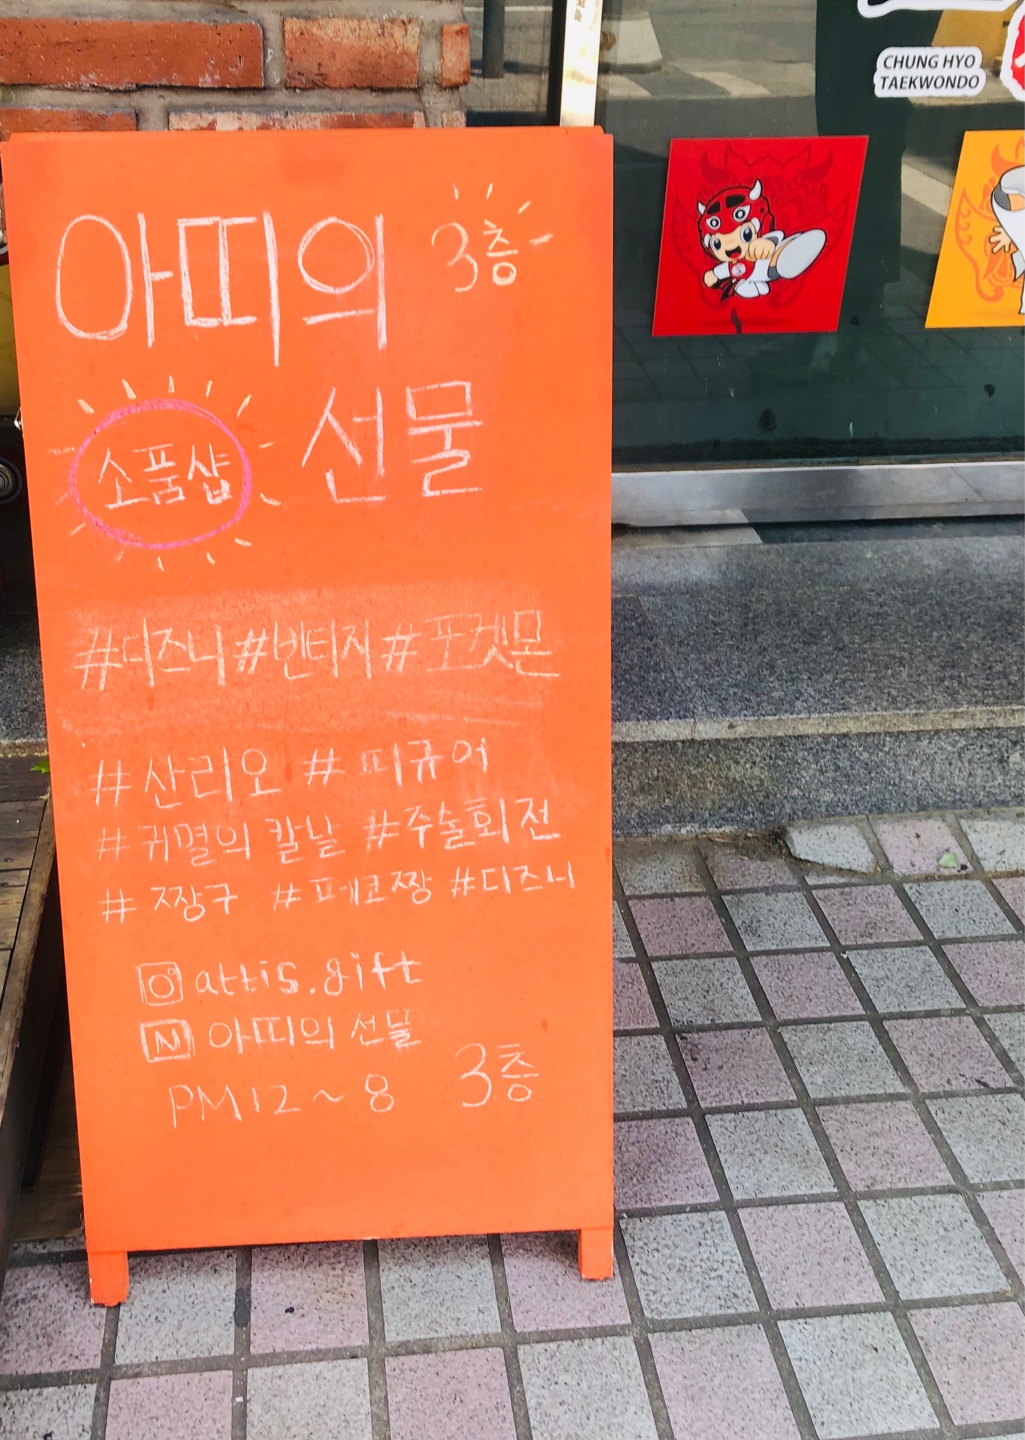 아띠의 3층
소품샵 선물
#디즈니 #빈티지 #포켓몬
#산리오 #피규어
#귀멸의 칼날 #주술회전
#짱구 #페코짱 #디즈니
attis.gift
N 아띠의 선물
PM 12 ~ 8 3층
CHUNG HYO
TAEKWONDO